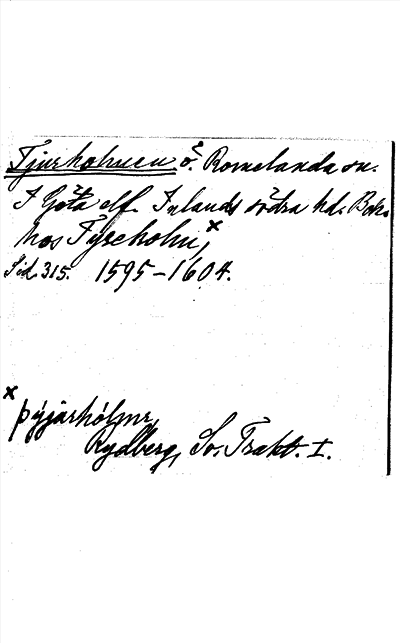 Tjurholmen ö. Romelanda sn.
I Göta elf. Inlands södra hd. Boh.
hos Tyreholm,x
Sid. 315. 1595-1604.
x
þýjarhólmr,
Rydberg, Sv. Trakt. I.